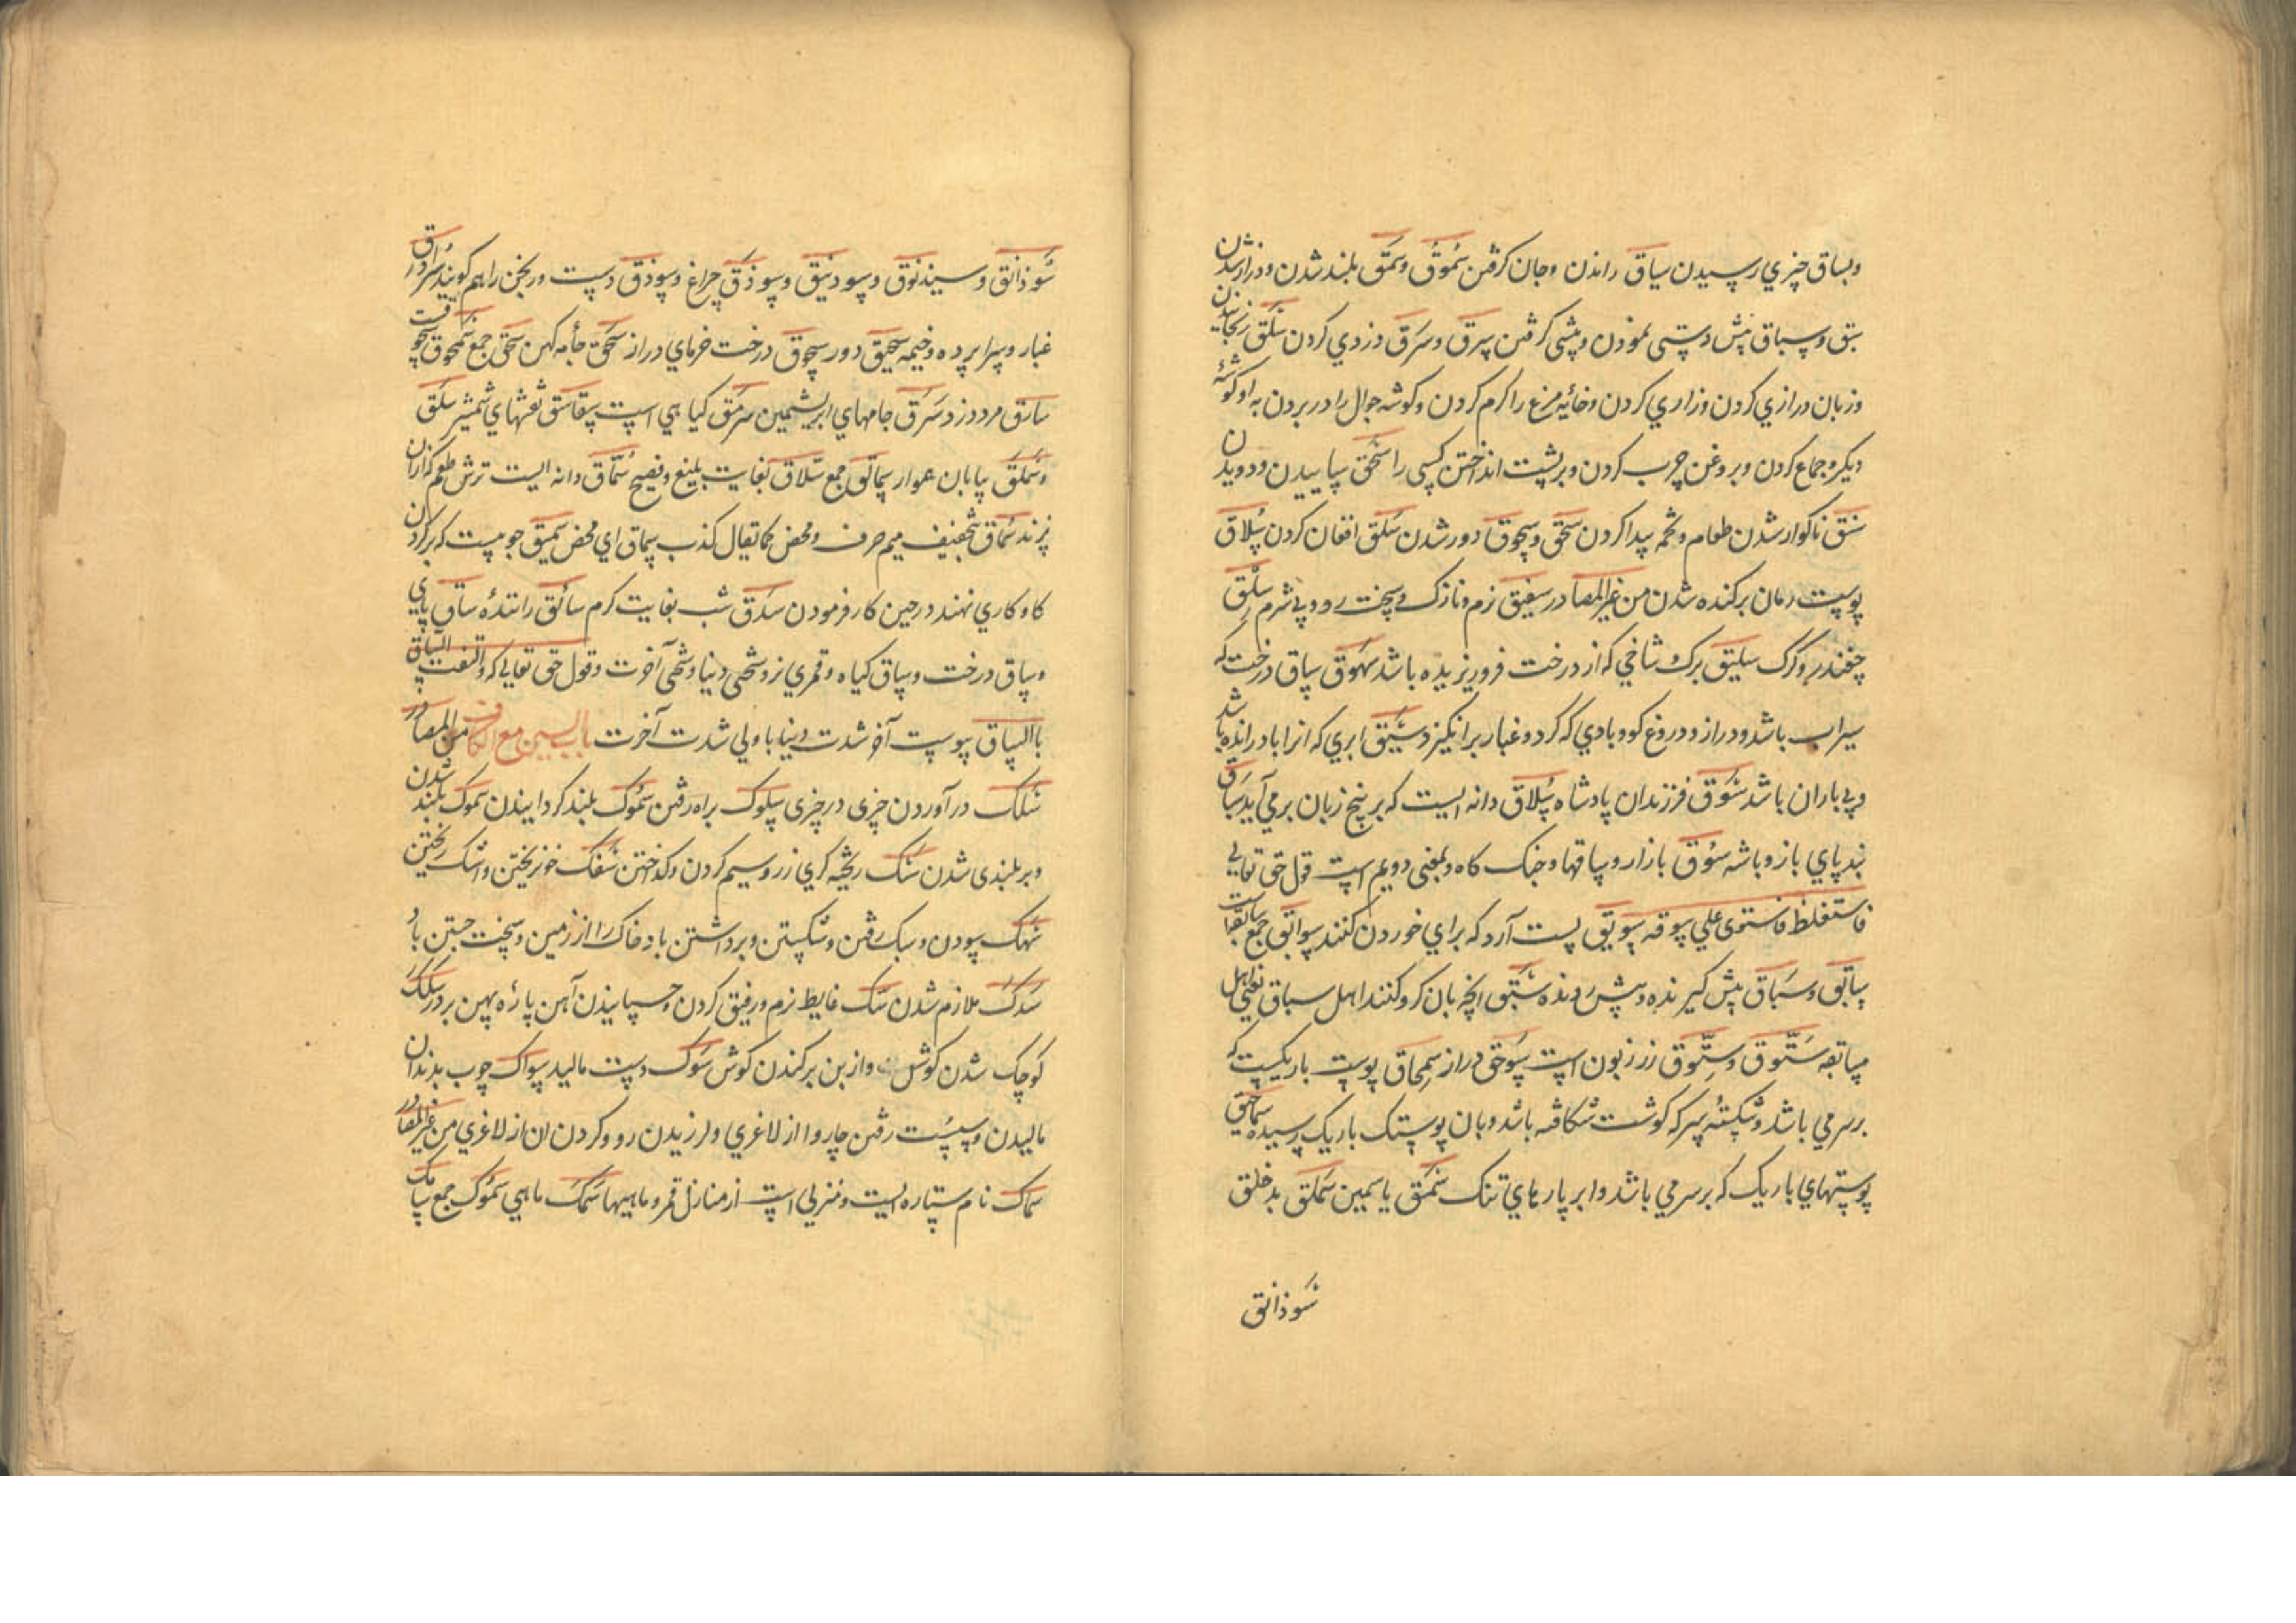 وبساق چیزي رسیدن سیاق راندن وجان کرفتن سموق وسمق بلند شدن ودراز شدن
سبق وسباق پیش دستی نمودن وپیشی کرفتن سرق وسرق دزدي کردن سلق رنجانیدن
وزبان درازي کردن وزاري کردن وخائیه مرغ را کرم کردن وکوشه جوال را در بردن به او کوشه
دیکر وجماع کردن وبروغن چرب کردن وبرپشت انداختن کسی را سحق ساییدن ودویدن
سنق ناکوار شدن طعام وتخمه پیدا کردن سحق وسحوق دور شدن سلق افغان کردن سلاق
پوست دهان برکنده شدن من غیر المصادر سفیق نرم ونازک وسخت رو وبي شرم سلق
چغندر وکرک سلیق برک شاخي که از درخت فروریزیده باشد سهوق ساق درخت که
سیراب باشد ودراز ودروغ کو وبادي که کرد وغبار برانکیزد سیق ابري که انرا باد رانده باشد
وبي باران باشد سوق فرزندان پادشاه سلاق دانه ایست که بر بیخ زبان برمي آید سباق
بند پاي باز وباشه سوق بازار وساقها وجنک کاه وبمعنی دویم است قول حق تعالی
فاستغلظ فاستوی علي سوقه سویق پست آرد که براي خوردن کنند سوائق جمع سابقات
سابق وسباق پیش کیرنده وپیش رونده سبق انچه بان کرو کنند اهل سباق یعنی اهل
مسابقه ستوق وستوق زر زبون است سوحق دراز سمحاق پوست باریکیست که
برسر مي باشد وشکسته سر که کوشت شکافته باشد وبان پوستک باریک رسیده سماحیق
پوستهاي باریک که برسر مي باشد وابر پارهاي تنک سمق یاسمین سملق بد خلق
سوذانق
سوذانق وسیذنوق وسوذنیق وسوذق چراغ وسوذق دست وربخن را هم کویند سرادق
غبار وسراپرده وخیمه سحیق دور سحوق درخت خرماي دراز سحق جامه کهن سحق جمع سمحوق
سارق مرد دزد سرق جامهاي ابریشمین سرمق کیاهي است سقاسق نقشهاي شمشیر سلق
وسملق بیابان هموار سمالق جمع سلاق بغایت بلیغ وفصیح سماق دانه ایست ترش طعم که در آن
پزند سماق بتخفیف میم صرف ومحض کما یقال کذب سماق اي محض سمیق چوبیست که بر کردن
کاو کاري نهند در حین کار فرمودن سدق شب بغایت کرم سائق راننده ساق پاي
وساق درخت وساق کیاه وقمري نر وسختی دنیا وسختی آخرت وقول حق تعالي که والتفت الساق
بالساق پیوست آخر شدت دنیا با ولي شدت آخرت باب السین مع الکاف من المصادر
سلک در آوردن چیزی در چیزی سلوک براه رفتن سموک بلند کردانیدن سموک بلند شدن
وبر بلندی شدن سبک ریخته کري زر وسیم کردن وکداختن سفک خون ریختن واشک ریختن
سهک سودن وسبک رفتن وشکستن وبرداشتن باد خاک را از زمین وسخت جستن باد
سدک ملازم شدن سک غایط نرم ورقیق کردن وچسپانیدن آهن پاره پهن بردر سکک
کوچک شدن کوش واز بن برکندن کوش سوک دست مالیدن سواک چوب بدندان
مالیدن وسست رفتن چاروا از لاغري ولرزیدن رو وکردن ان از لاغري من غیر المصادر
سماک نام ستاره ایست ومنزلي است از منازل قمر وماهیها سمک ماهي سموک جمع سامک